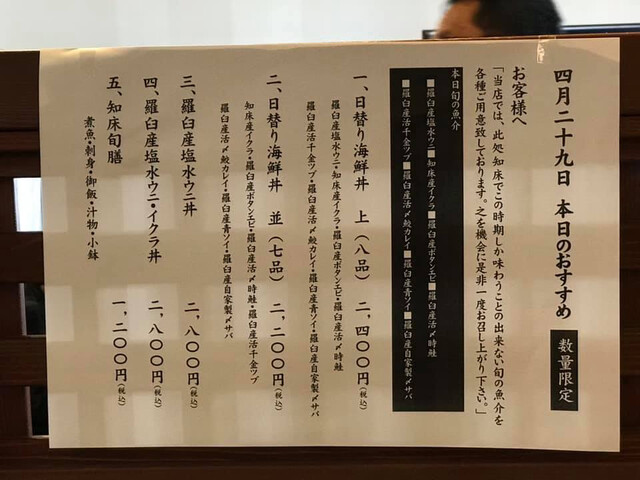 四月二十九日 本日のおすすめ 数量限定
お客様へ
「当店では、此処知床でこの時期しか味わうことの出来ない旬の魚介を
各種ご用意致しております。之を機会に是非一度お召し上がり下さい。」
本日旬の魚介
■羅臼産塩水ウニ■知床産イクラ■羅臼産ボタンエビ■羅臼産活〆時鮭
■羅臼産活千金ツブ■羅臼産活〆鮫カレイ■羅臼産青ソイ■羅臼産自家製〆サバ
一、日替り海鮮丼 上(八品) 二、四〇〇円(税込)
羅臼産塩水ウニ・知床産イクラ・羅臼産ボタンエビ・羅臼産活〆時鮭
羅臼産活千金ツブ・羅臼産活〆鮫カレイ・羅臼産青ソイ・羅臼産自家製〆サバ
二、日替り海鮮丼 並(七品) 二、二〇〇円(税込)
知床産イクラ・羅臼産ボタンエビ・羅臼産活〆時鮭・羅臼産活千金ツブ
羅臼産活〆鮫カレイ・羅臼産青ソイ・羅臼産自家製〆サバ
三、羅臼産塩水ウニ丼 二、八〇〇円(税込)
四、羅臼産塩水ウニ・イクラ丼 二、八〇〇円(税込)
五、知床旬膳 一、二〇〇円(税込)
煮魚・刺身・御飯・汁物・小鉢